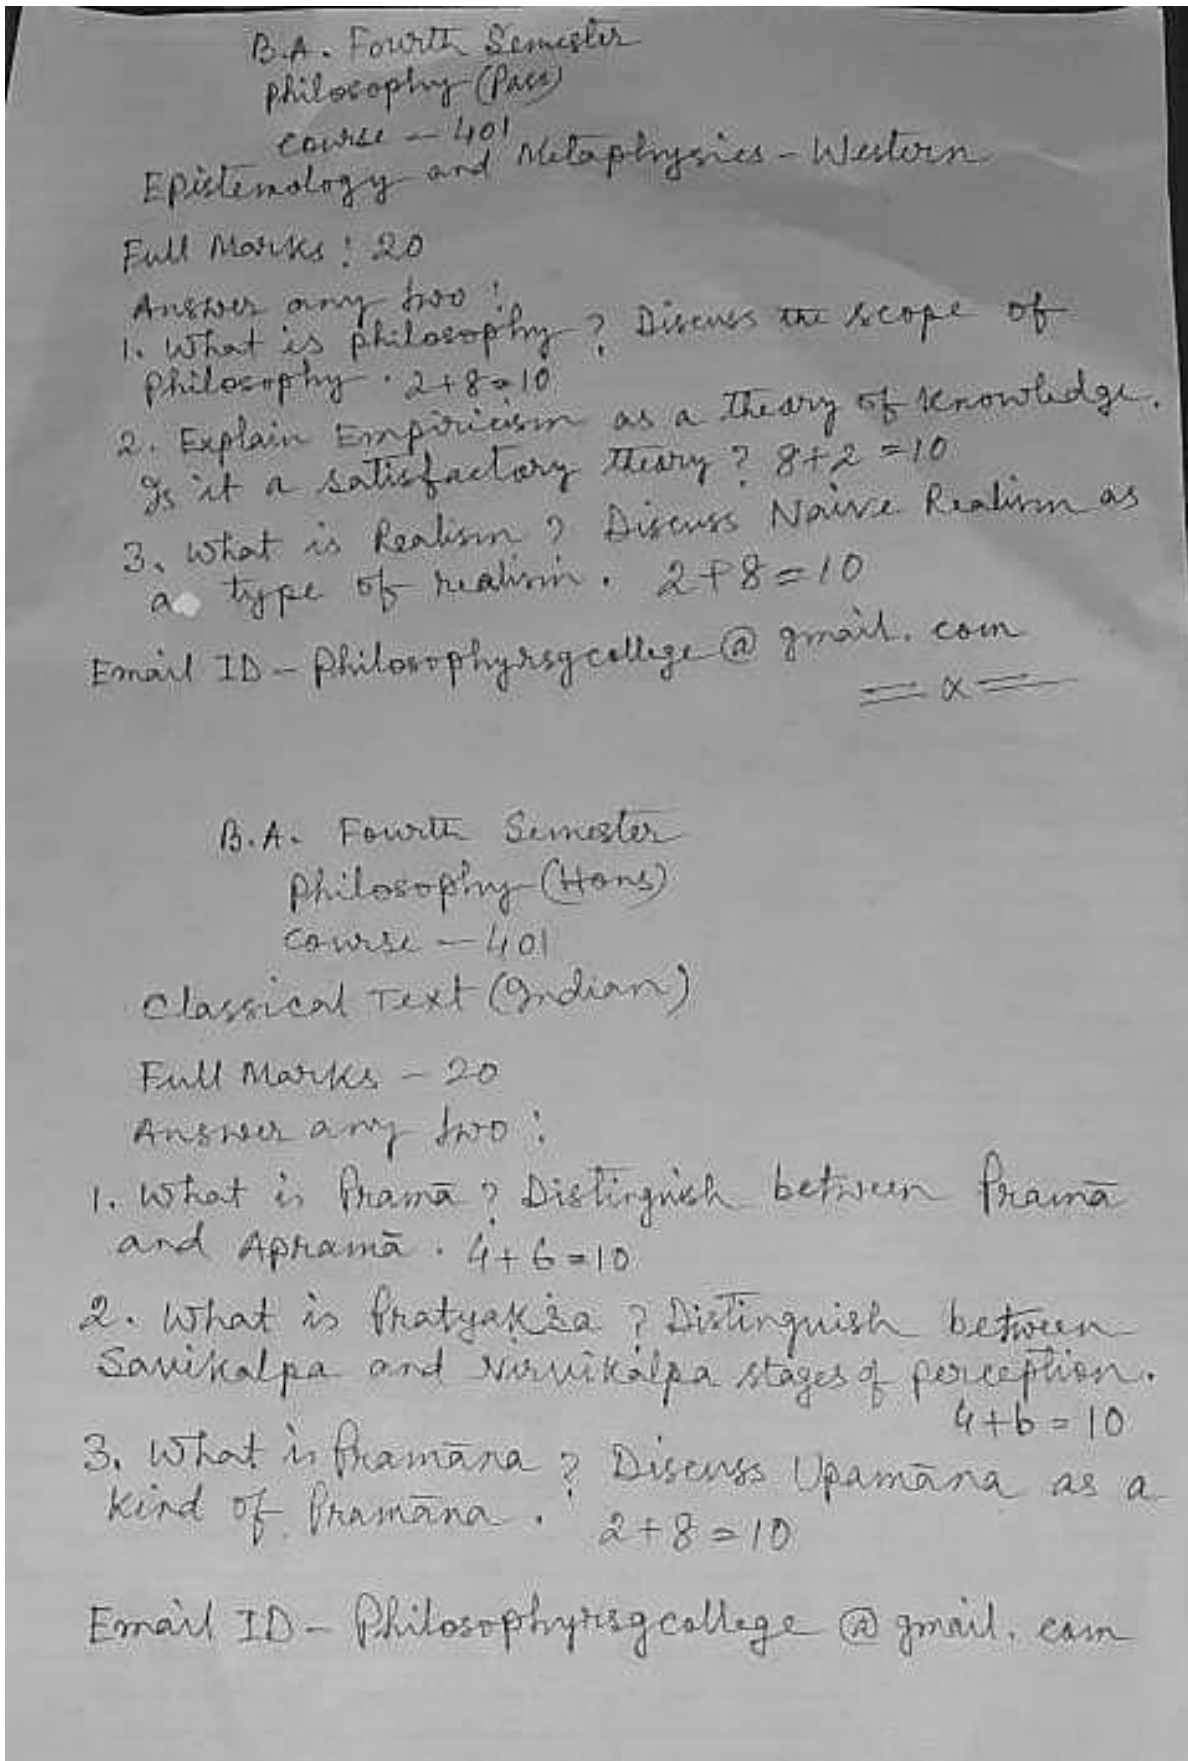 B.A. Fourth Semester
Philosophy (Pass)
Course - 401
Epistemology and Metaphysics - Western
Full Marks : 20
Answer any two :
1. What is philosophy ? Discuss the scope of
Philosophy. 2+8=10
2. Explain Empiricism as a theory of knowledge.
Is it a satisfactory theory ? 8+2=10
3. What is Realism ? Discuss Naive Realism as
a type of realism. 2+8=10
Email ID - Philosophyrsgcollege@gmail.com
== x ==
B.A. Fourth Semester
Philosophy (Hons)
Course - 401
Classical Text (Indian)
Full Marks - 20
Answer any two :
1. What is Pramā ? Distinguish between Pramā
and Apramā. 4+6=10
2. What is Pratyakṣa ? Distinguish between
Savikalpa and Nirvikalpa stages of perception.
4+6=10
3. What is Pramāna ? Discuss Upamāna as a
kind of Pramāna. 2+8=10
Email ID - Philosophyrsgcollege@gmail.com